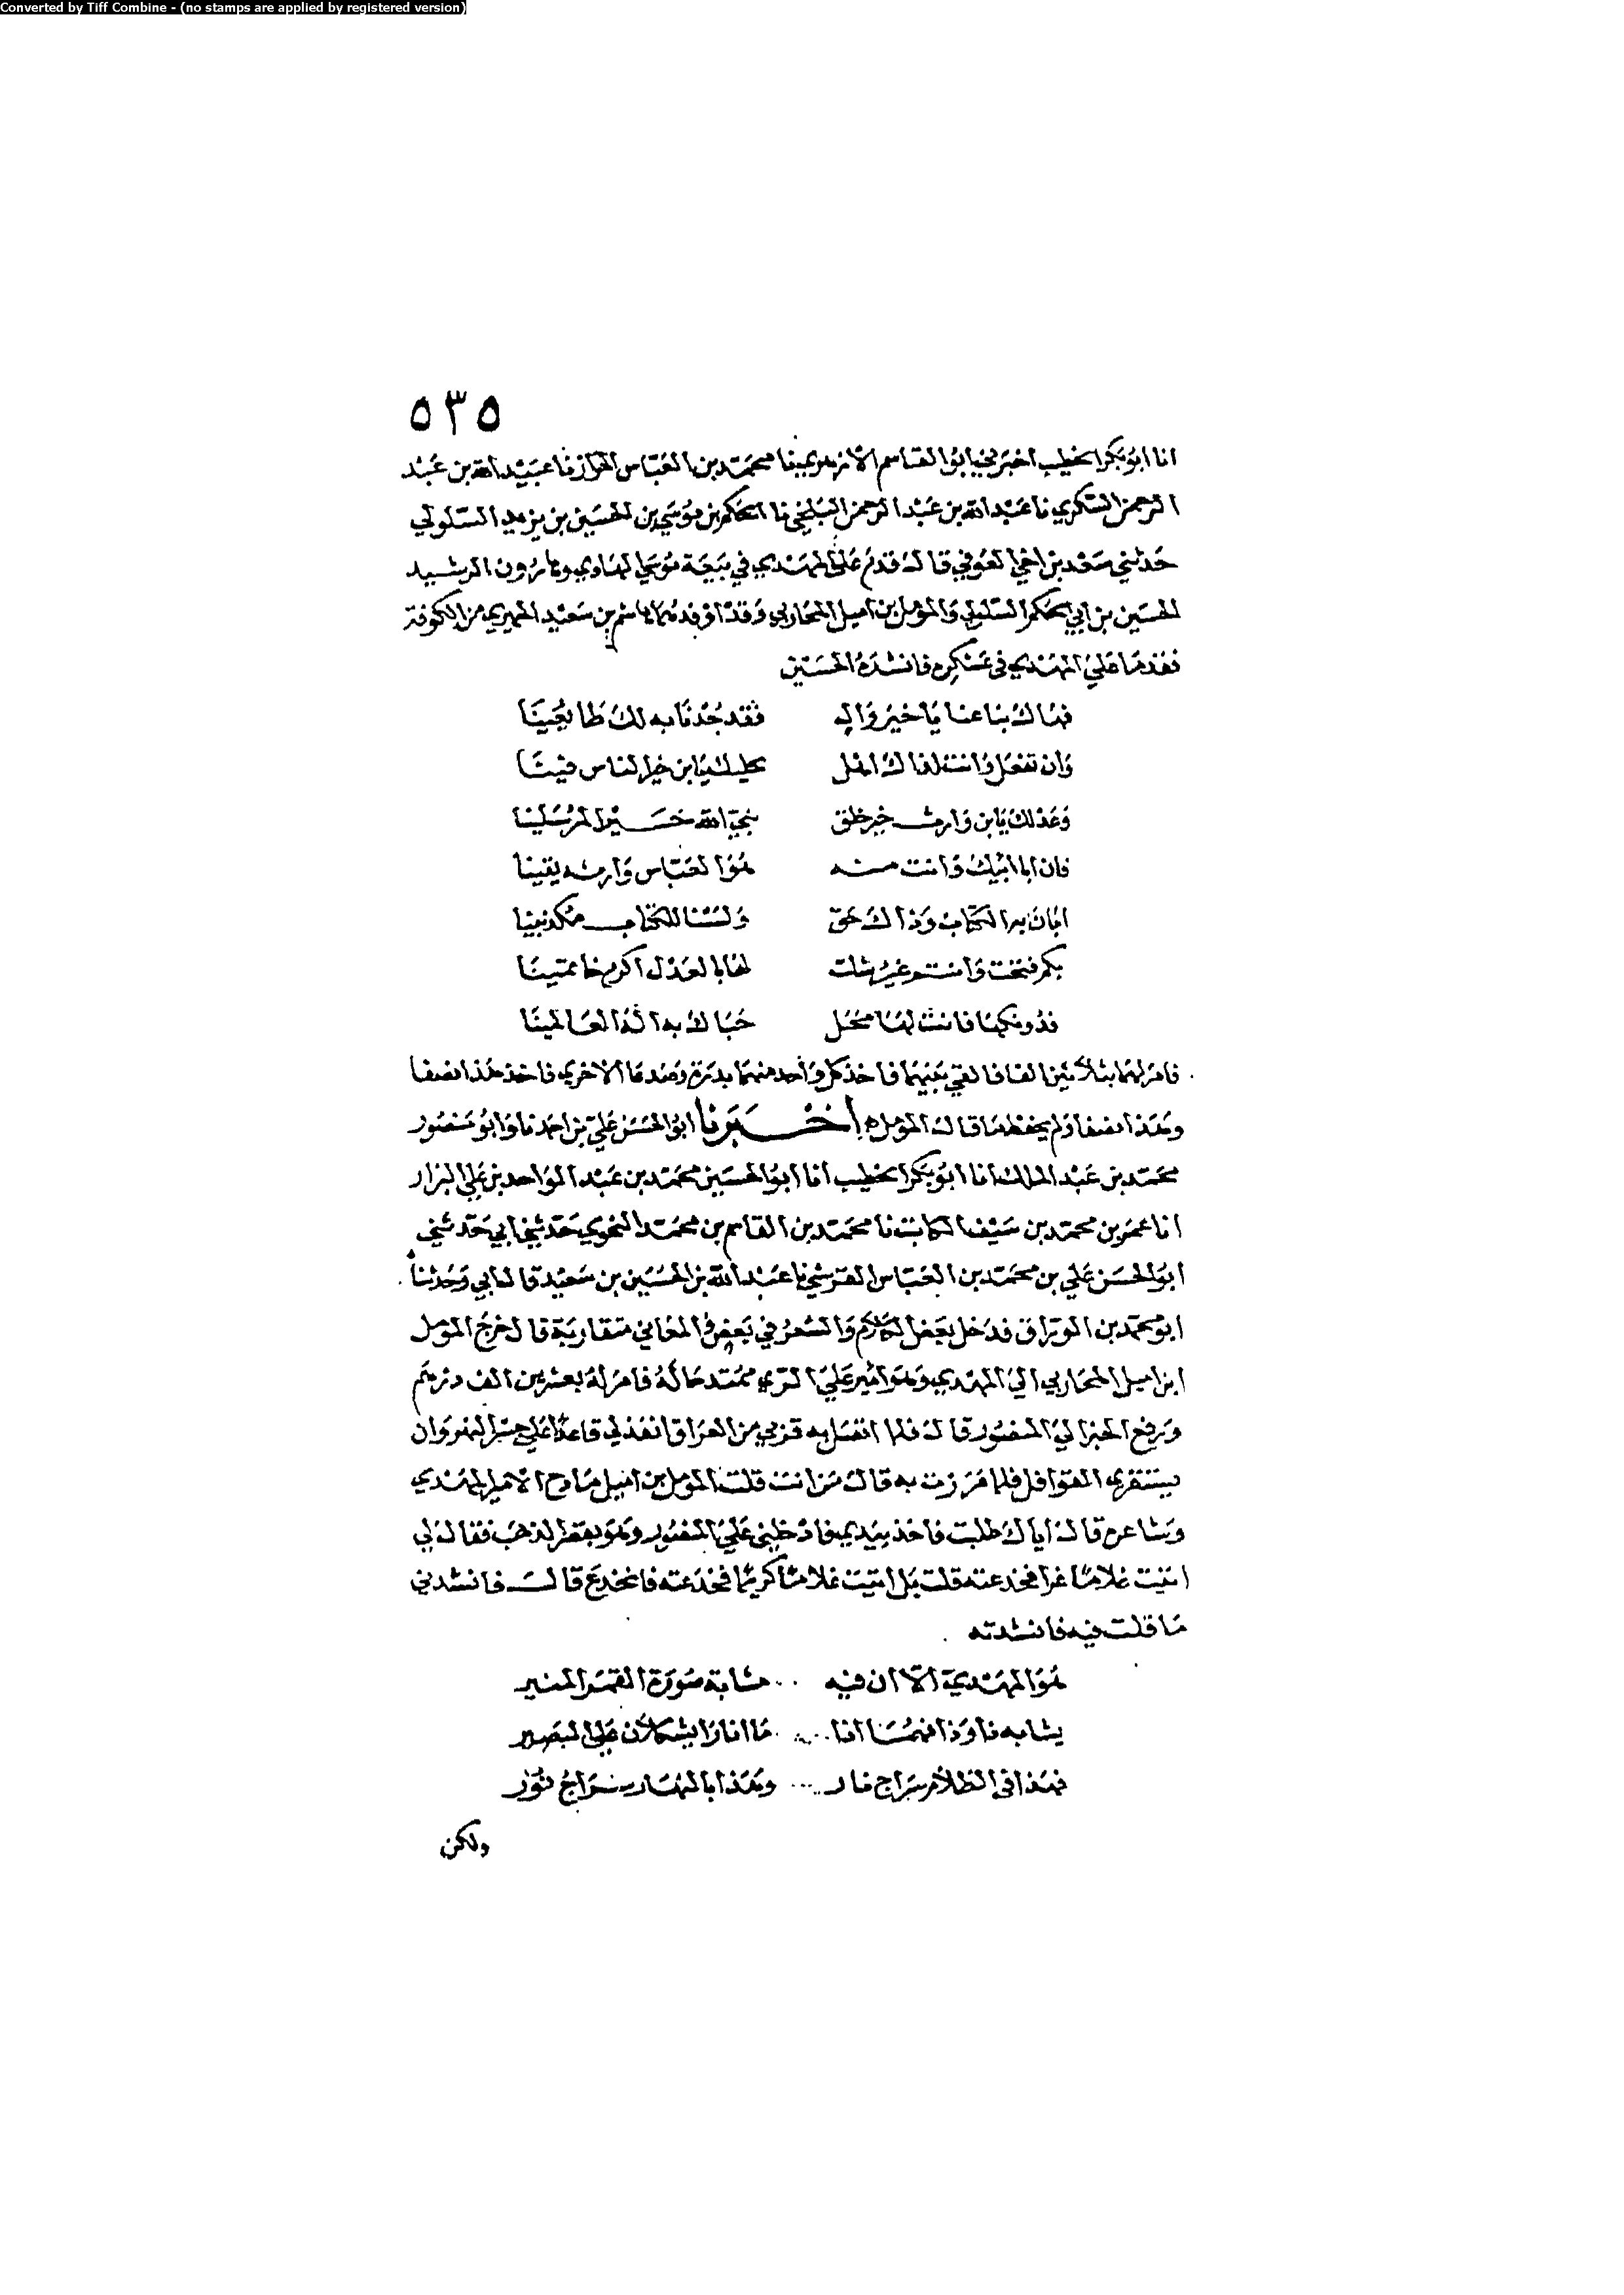 Converted by Tiff Combine - (no stamps are applied by registered version)
٥٣٥
انا ابو بكر الخطيب اخبرني ابو القاسم الازهري نا محمد بن العباس الخزاز نا عبيد الله بن عبد
الرحمن السكري نا عبد الله بن عبد الرحمن البلخي نا الحكم بن موسى بن الحسين بن يزيد السلولي
حدثني سعد بن اخي العوفي قال قدم على المهدي في بيعة موسى الهادي وهارون الرشيد
الحسين بن ابي الحكم السلولي والمؤمل بن اميل المحاربي وقد اوفدهما هاشم بن سعيد الحميري من الكوفة
فقدما على المهدي في عسكره فانشده الحسين
فهاك بياعنا يا خير وال فقد جدنا به لك طايعينا
وان تفعل وانت لذاك اهل بحلمك يا بن خير الناس فينا
وعدلك يا بن وارث خير خلق نبي الله خير المرسلينا
فان ابا ابيك وانت منه هو العباس وارثه يقينا
ابان به الكتاب وذاك حق ولسنا للكتاب مكذبينا
بكم فتحت وانتم غير شك لها بالعدل اكرم خاتمينا
فدونكها فانت لها محل حباك بها اله العالمينا
فامر لهما بثلاثين الفا فالقي بينهما فاخذ كل واحد منهما بدرة وصدعا الاخرى فاخذ هذا نصفا
وهذا نصفا ولم يحفظ ما قال المؤمل اخبرنا ابو الحسن علي بن احمد نا وابو منصور
محمد بن عبد الملك انا ابو بكر الخطيب انا ابو الحسين محمد بن عبد الواحد بن علي البزار
انا عمر بن محمد بن سيف الكاتب نا محمد بن القاسم بن محمد النحوي حدثني ابي حدثني
ابو الحسن علي بن محمد بن العباس القرشي نا عبد الله بن الحسين بن سعيد قال ابي وحدثنا
ابو محمد بن الوراق فدخل بعض الكلام والشعر في بعض والمعاني متقاربة قال خرج المؤمل
ابن اميل المحاربي الى المهدي وهو امير على الري ممتدحا له فامر له بعشرين الف درهم
ورفع الخبر الى المنصور قال فلما اتصل به قربي من العراق انفذ لي قاعدا على جسر النهروان
يستقري القوافل فلما مررت به قال من انت قلت المؤمل بن اميل مادح الامير المهدي
وشاعره قال اياك طلبت فاخذ بيدي فادخلني على المنصور وهو بقصر الذهب فقال لي
اتيت غلاما غرا فخدعته قلت بل اتيت غلاما كريما فخدعته فانخدع قال فانشدني
ما قلت فيه فانشدته
هو المهدي الا ان فيه مشابة صورة القمر المنير
يشابه ذا وذا فهما اذا ما انارا يشكلان على البصير
فهذا في الظلام سراج نار وهذا بالنهار سراج نور
ولكن